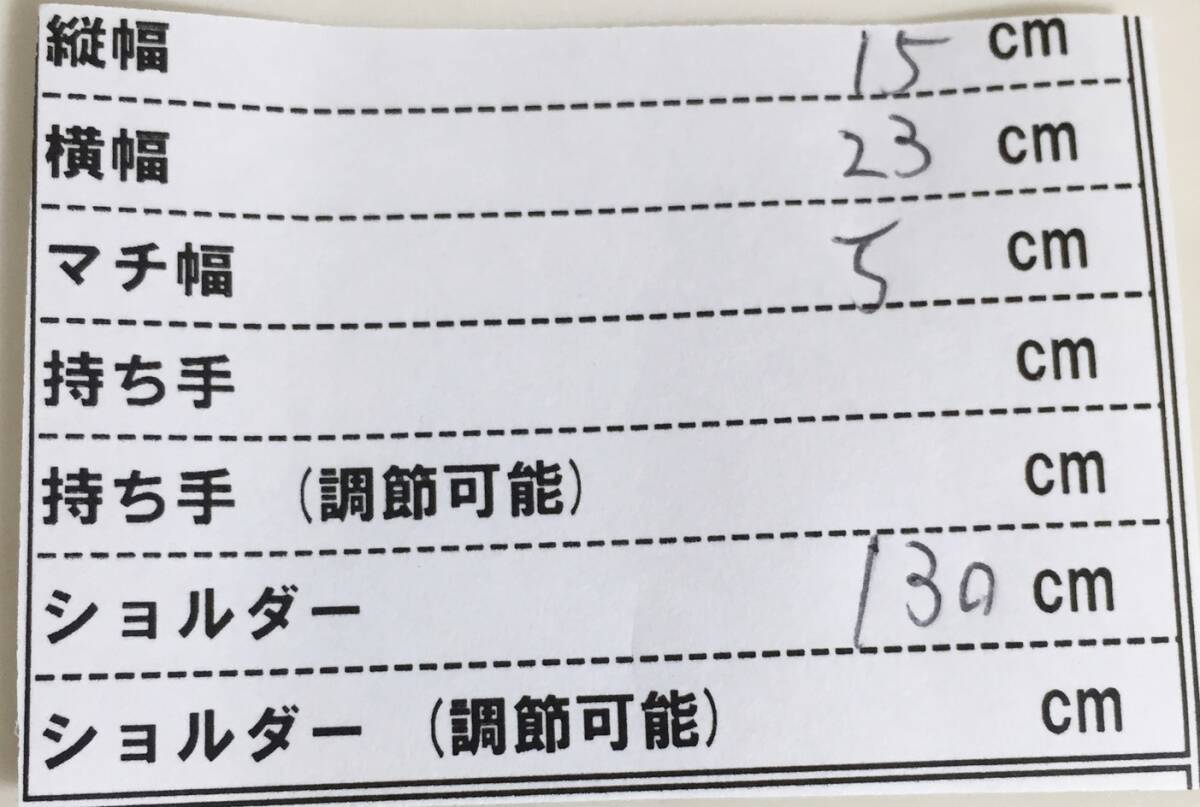 縦幅 15 cm
横幅 23 cm
マチ幅 5 cm
持ち手 cm
持ち手 (調節可能) cm
ショルダー 130 cm
ショルダー (調節可能) cm